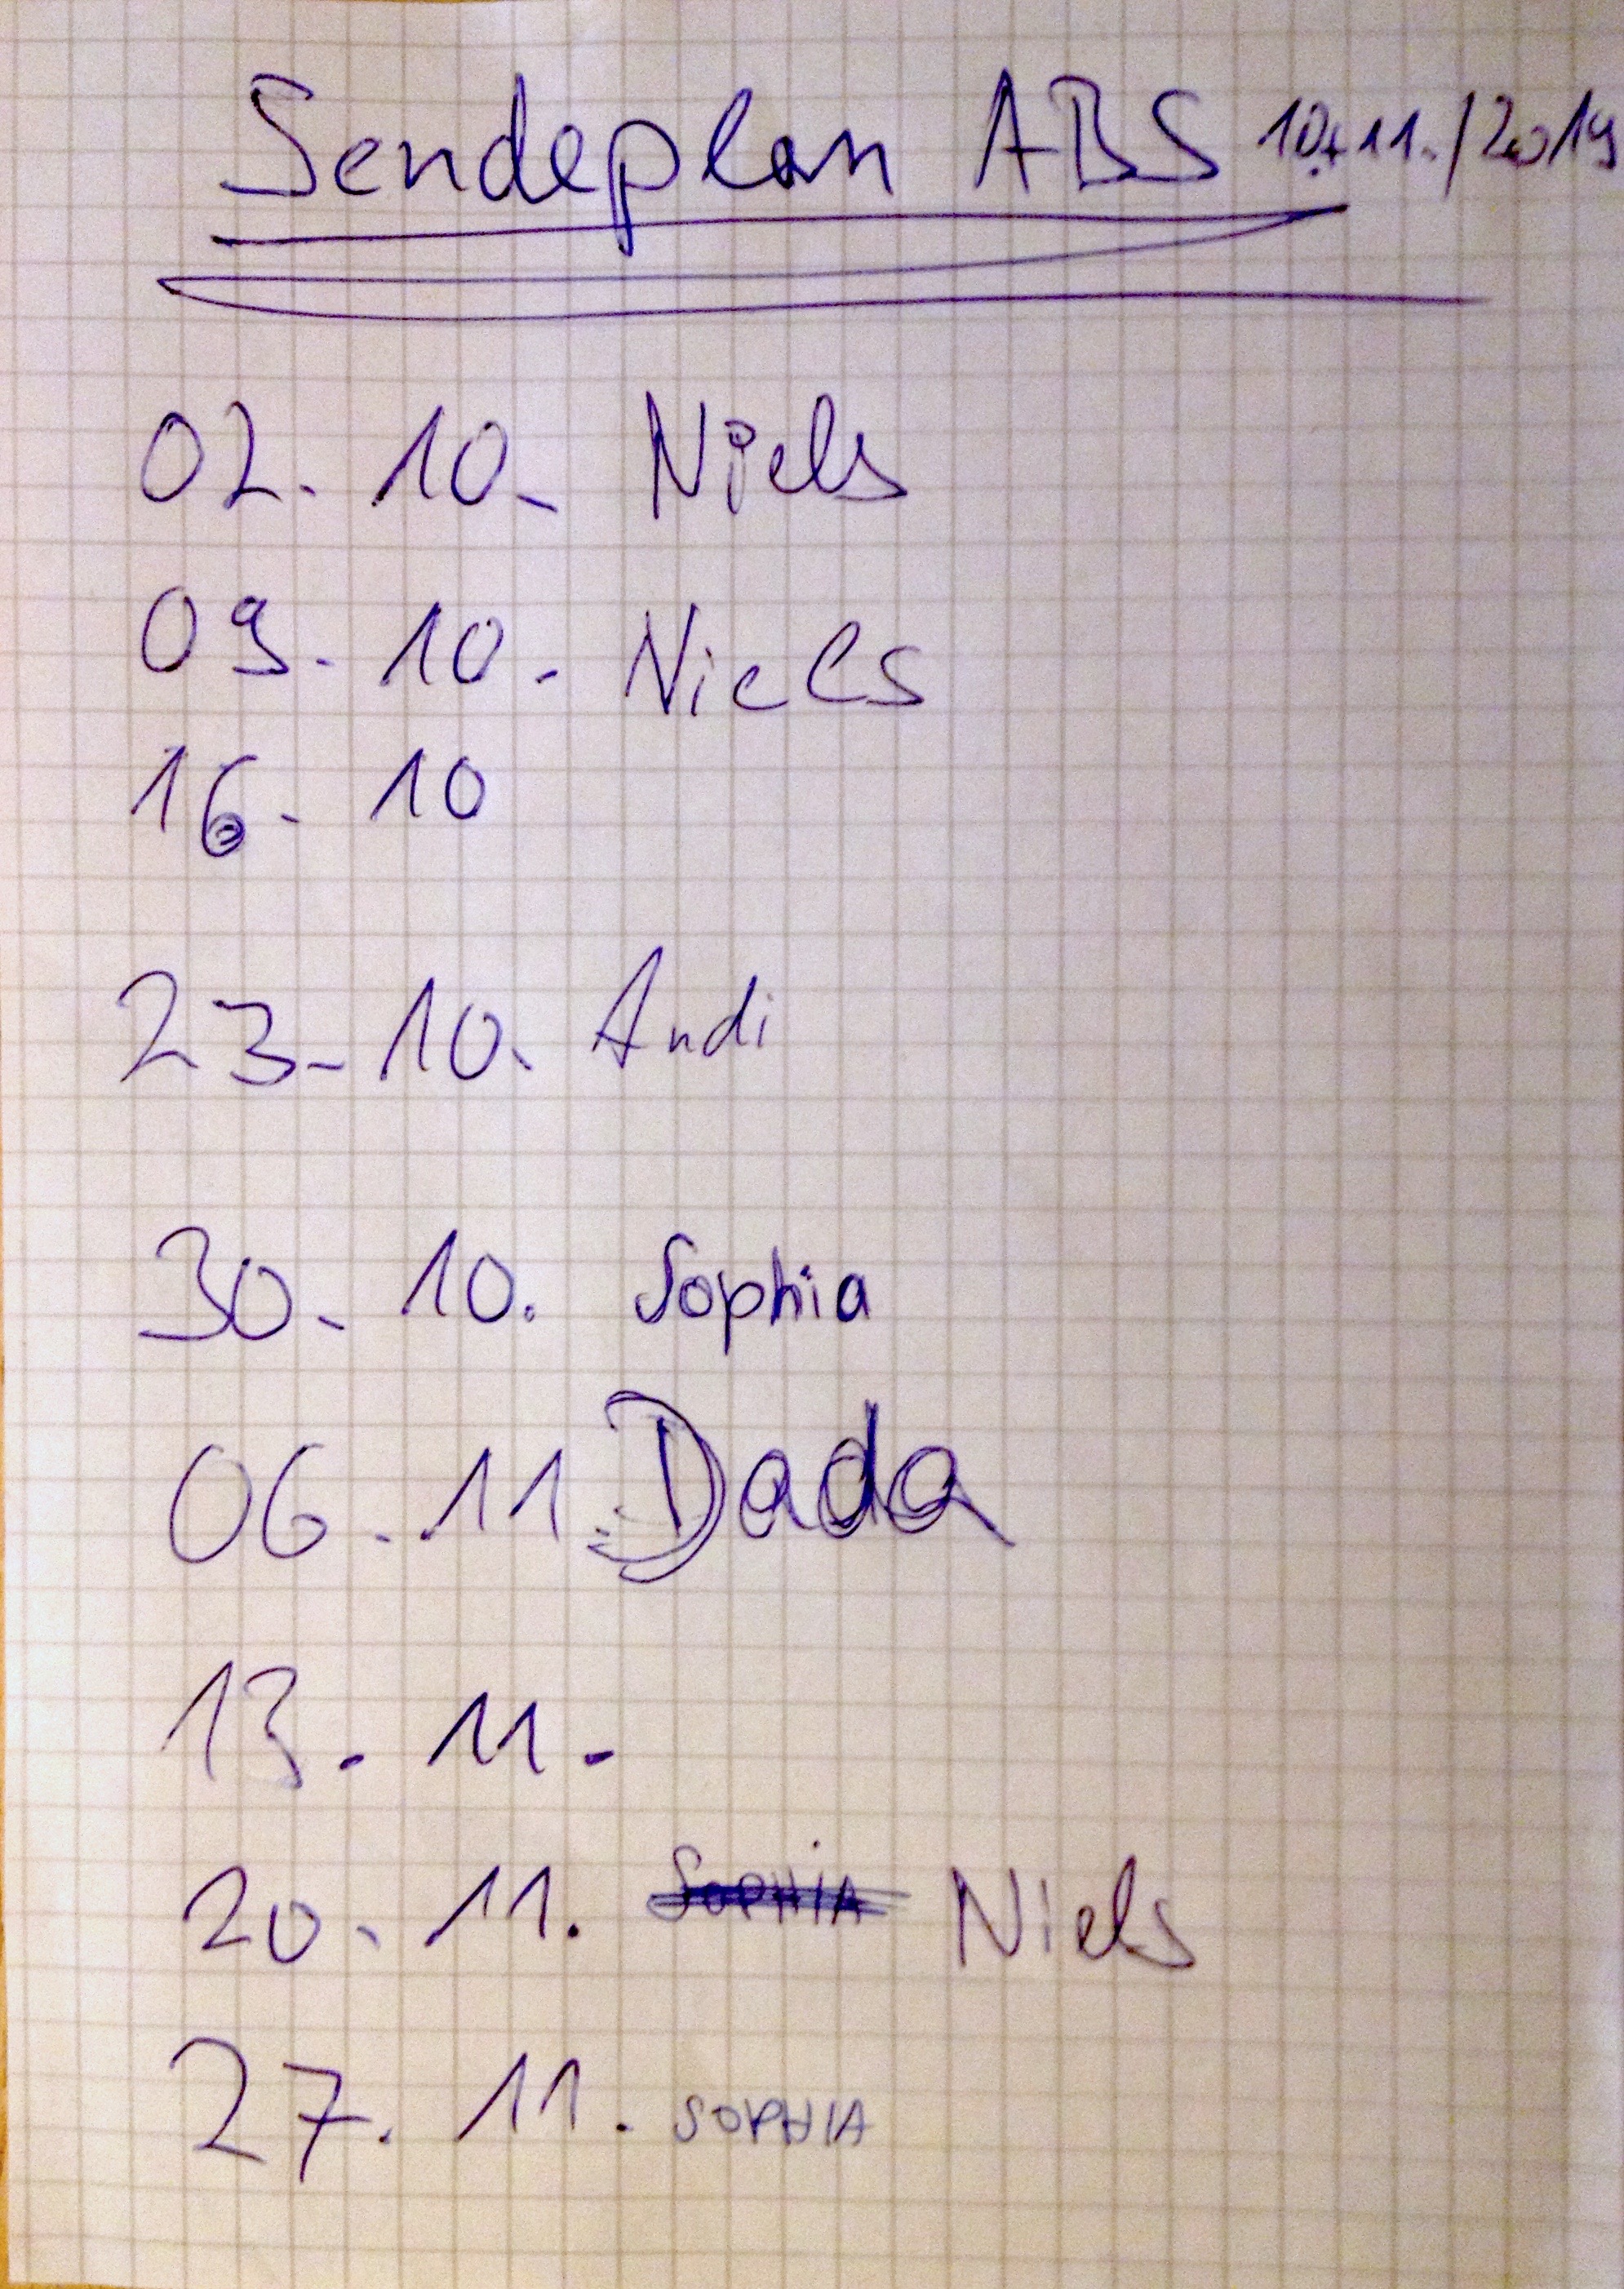 Sendeplan ABS 10.+11./2019
02. 10. Niels
09. 10. Niels
16. 10
23. 10. Andi
30. 10. Sophia
06. 11. Dada
13. 11.
20. 11. SOPHiA Niels
27. 11. SOPHIA